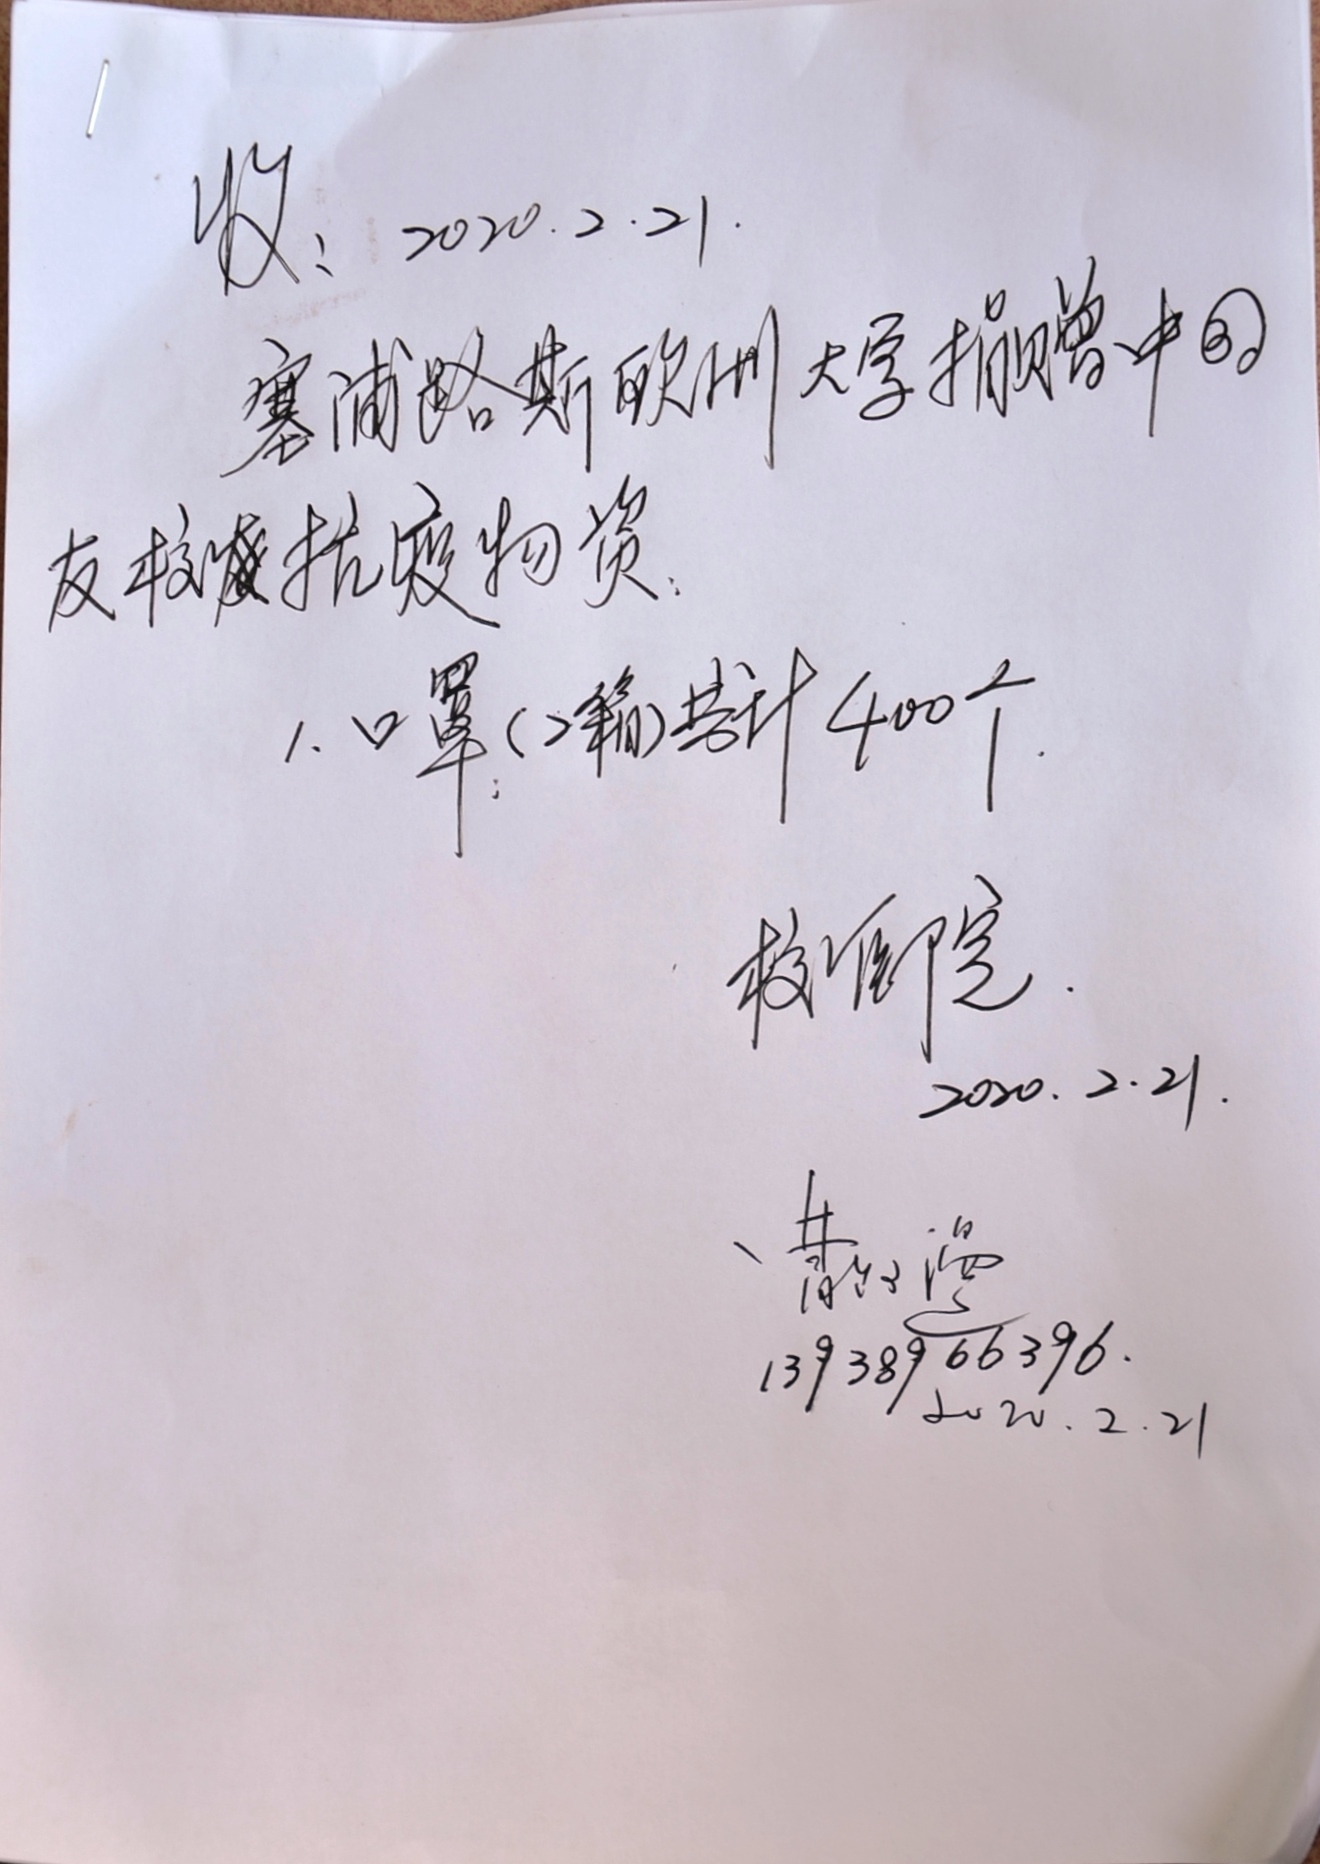 收：2020.2.21.
塞浦路斯欧洲大学捐赠中国
友校抗疫物资：
1.口罩：(2箱)共计400个.
校医院.
2020.2.21.
13938966396.
2020.2.21